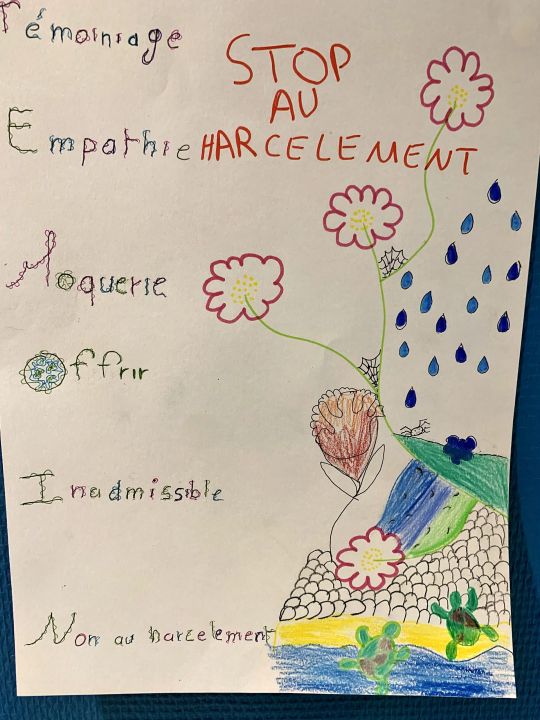 Témoiniage
STOP
AU
HARCELEMENT
Empathie
Moquerie
Offrir
Inadmissible
Non au harcelement